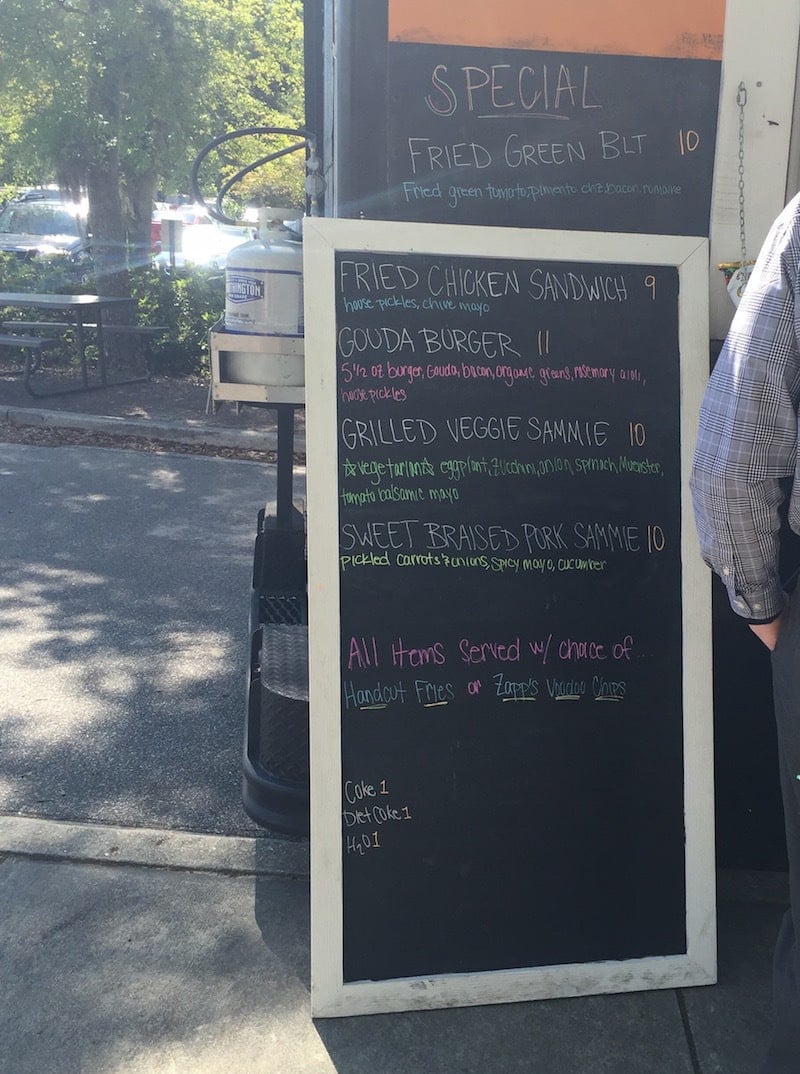 SPECIAL
FRIED GREEN BLT 10
Fried green tomato, pimento chz, bacon, romaine
FRIED CHICKEN SANDWICH 9
house pickles, chive mayo
GOUDA BURGER 11
5 1/2 oz burger, Gouda, bacon, organic greens, rosemary aioli,
house pickles
GRILLED VEGGIE SAMMIE 10
☆vegetarian☆ eggplant, zucchini, onion, spinach, Muenster,
tomato balsamic mayo
SWEET BRAISED PORK SAMMIE 10
pickled carrots & onions, spicy mayo, cucumber
All Items Served w/ choice of...
Handcut Fries or Zapp's Voodoo Chips
Coke 1
Diet Coke 1
H₂O 1